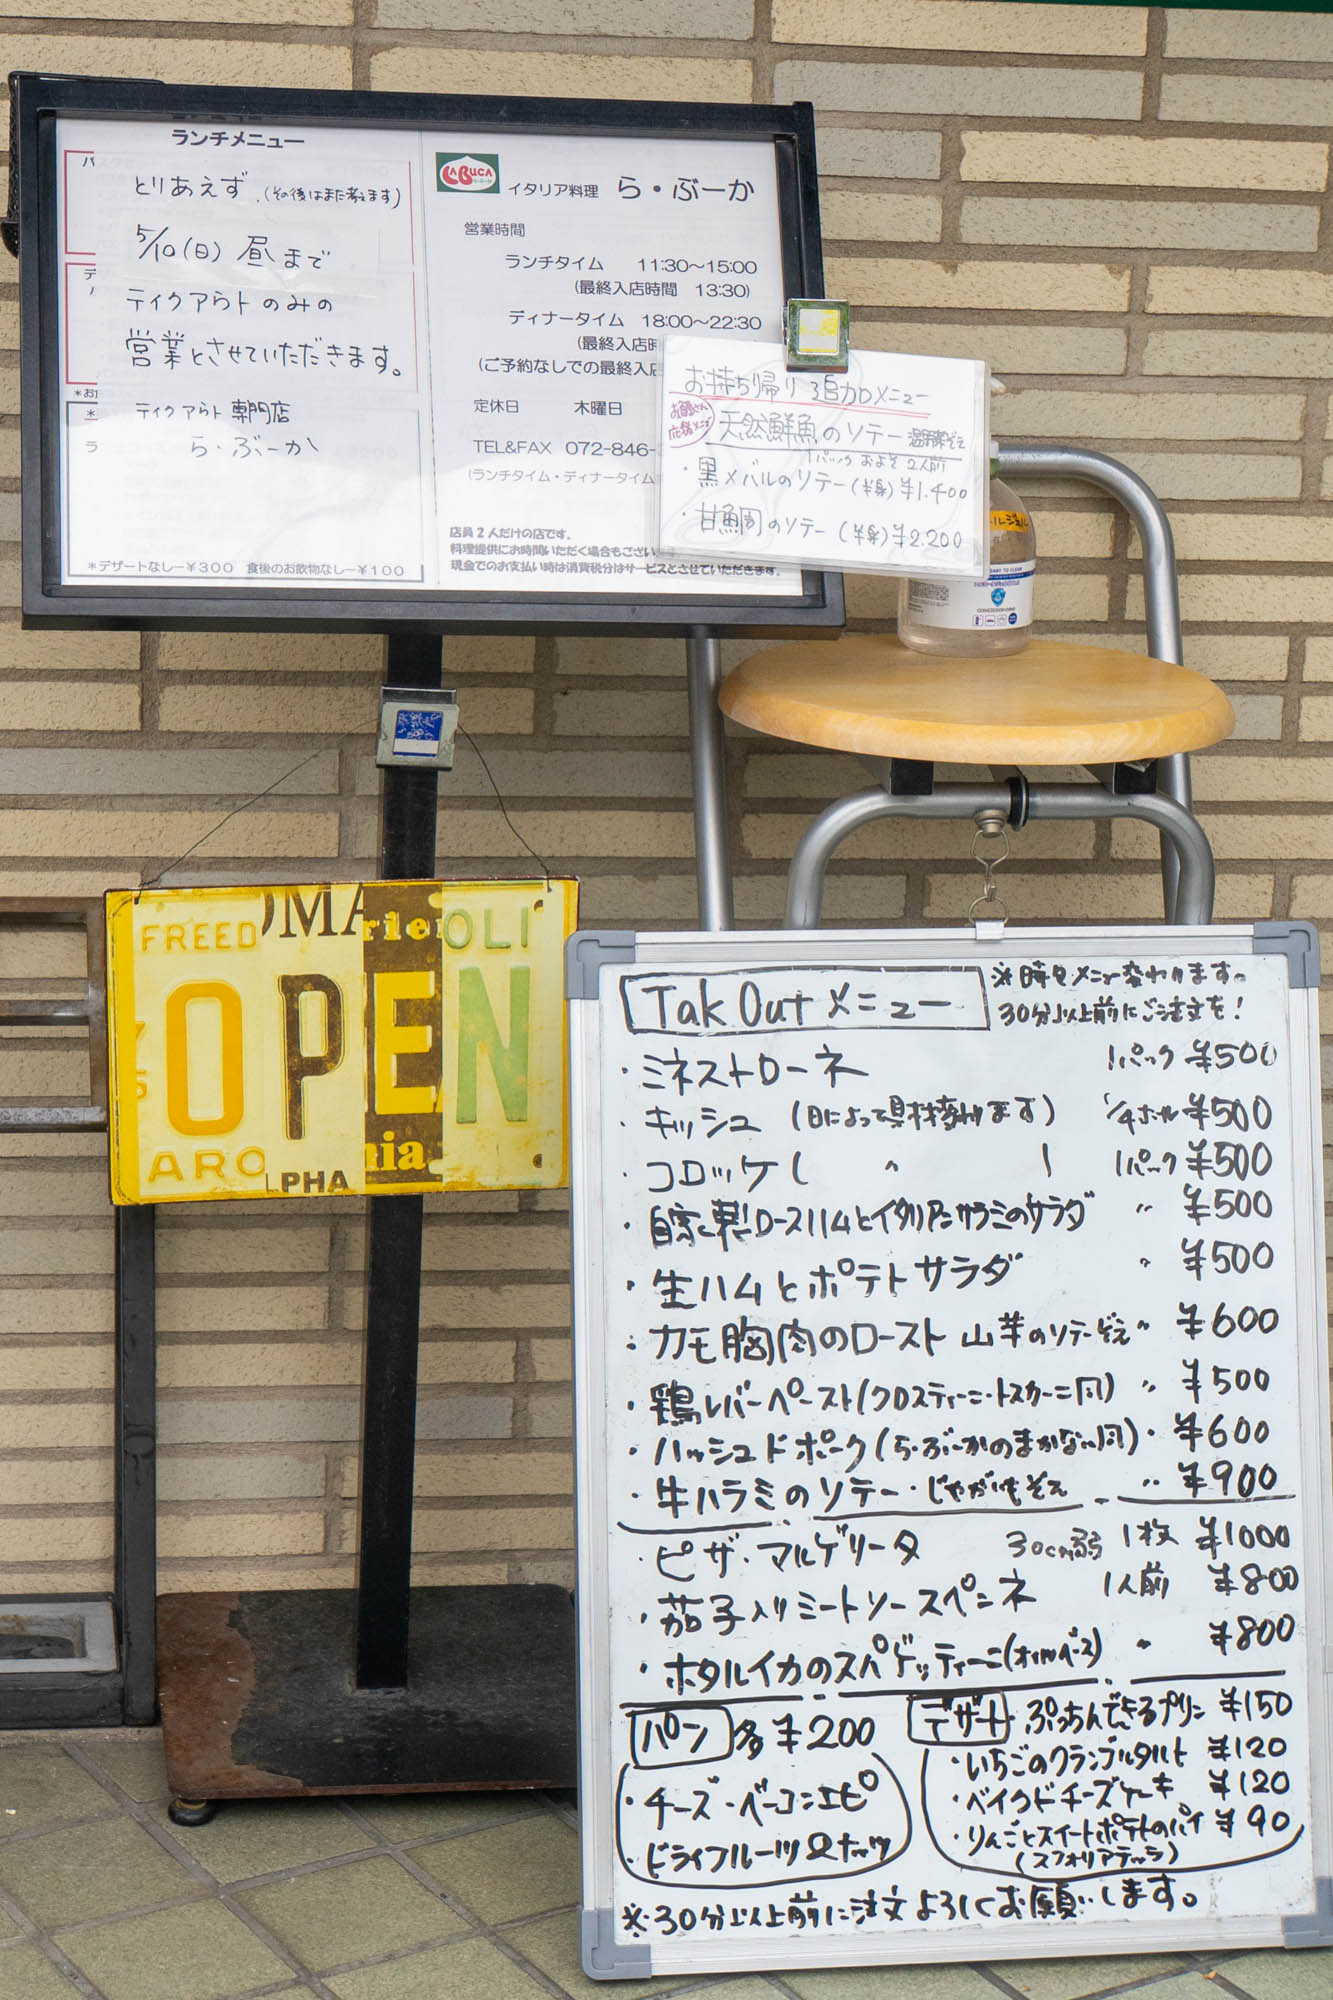 ランチメニュー
とりあえず (その後はまた考えます)
5/10(日) 昼まで
テイクアウトのみの
営業とさせていただきます。
テイクアウト専門店
ら・ぶーか
＊デザートなし―￥300 食後のお飲物なし―￥100
LA BUCA
イタリア料理 ら・ぶーか
営業時間
ランチタイム 11:30～15:00
(最終入店時間 13:30)
ディナータイム 18:00～22:30
(最終入店時
(ご予約なしでの最終入店
定休日 木曜日
TEL&FAX 072-846-
(ランチタイム・ディナータイム
店員2人だけの店です。
料理提供にお時間いただく場合もござい
現金でのお支払い時は消費税分はサービスとさせていただきます。
お持ち帰り 追加メニュー
お魚屋さん
応援メニュー
天然鮮魚のソテー 温野菜ぞえ
1パックおよそ2人前
・黒メバルのソテー(半身)￥1.400
・甘鯛のソテー(半身)￥2.200
FREED OMA rie OLI
OPEN
ARO LPHA nia
Tak Out メニュー
※時々メニュー変わります。
30分以上前にご注文を!
・ミネストローネ 1パック ￥500
・キッシュ (日によって具材変わります) 1/4ホール ￥500
・コロッケ ( 〃 ) 1パック ￥500
・自家製ロースハムとイタリアンサラミのサラダ 〃 ￥500
・生ハムとポテトサラダ 〃 ￥500
・カモ胸肉のロースト 山芋のソテーぞえ 〃 ￥600
・鶏レバーペースト(クロスティーニ・トスカーニ風) 〃 ￥500
・ハッシュドポーク(ら・ぶーかのまかない風) 〃 ￥600
・牛ハラミのソテー・じゃがいもぞえ 〃 ￥900
・ピザ・マルゲリータ 30cm弱 1枚 ￥1000
・茄子入りミートソースペンネ 1人前 ￥800
・ホタルイカのスパゲッティーニ(オイルベース) 〃 ￥800
パン 各￥200
・チーズ・ベーコンエピ
・ドライフルーツ&ナッツ
デザート ぷっちんできるプリン ￥150
・いちごのクランブルタルト ￥120
・ベイクドチーズケーキ ￥120
・りんごとスイートポテトのパイ ￥90
(スフォリアテッラ)
※30分以上前に注文よろしくお願いします。